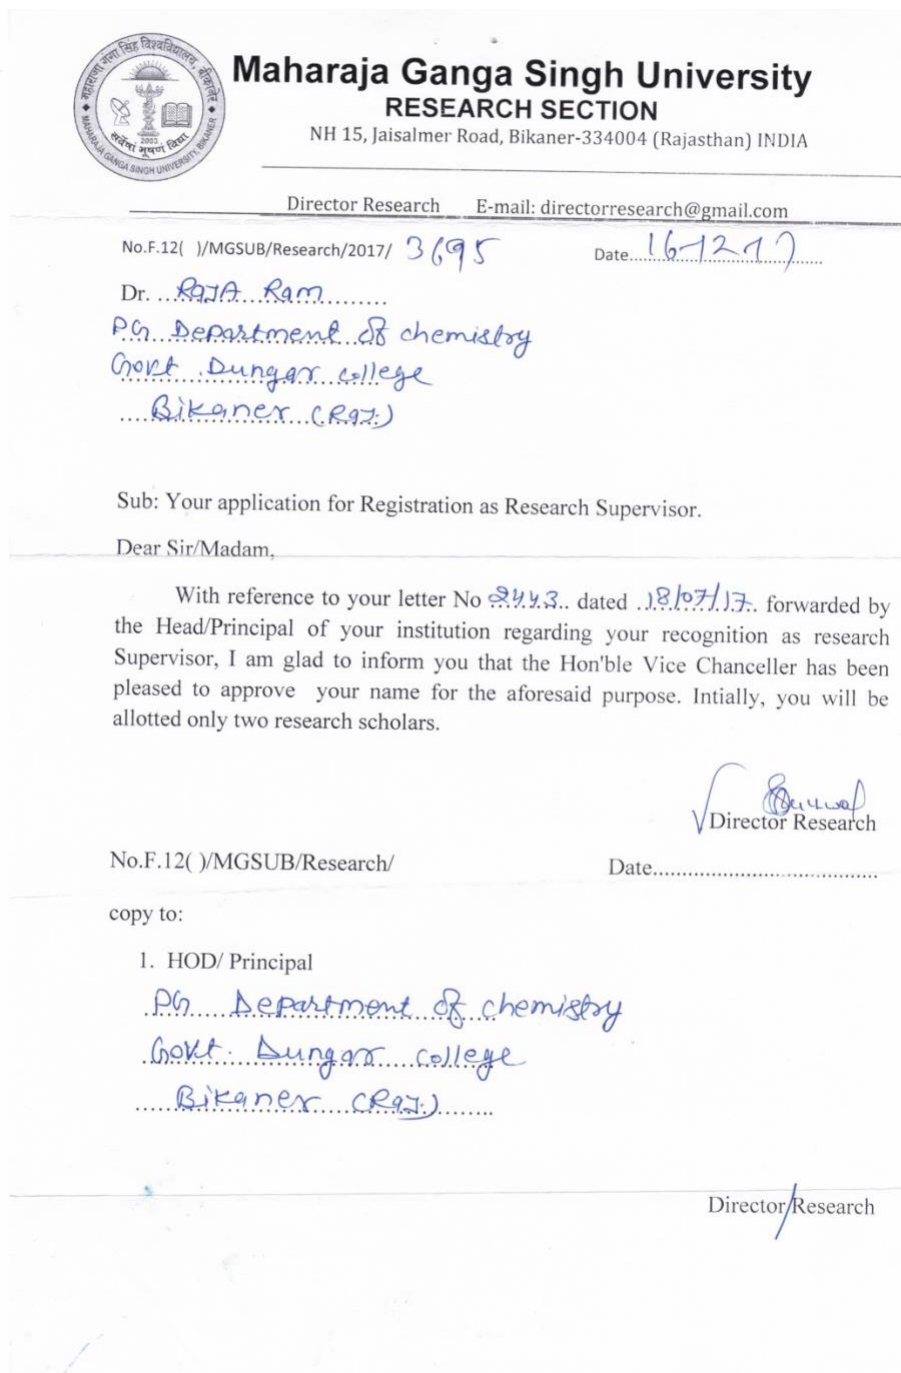 महाराजा गंगा सिंह विश्वविद्यालय, बीकानेर
MAHARAJA GANGA SINGH UNIVERSITY, BIKANER
2003
सर्वेषां भूषणं विद्या
Maharaja Ganga Singh University
RESEARCH SECTION
NH 15, Jaisalmer Road, Bikaner-334004 (Rajasthan) INDIA
Director Research E-mail: directorresearch@gmail.com
No.F.12( )/MGSUB/Research/2017/ 3695 Date....16-12-17....
Dr. ...RAJA Ram.........
PG Department of chemistry
Govt Dungar college
.....Bikaner (Raj.)
Sub: Your application for Registration as Research Supervisor.
Dear Sir/Madam,
With reference to your letter No 2443.. dated .18/07/17. forwarded by
the Head/Principal of your institution regarding your recognition as research
Supervisor, I am glad to inform you that the Hon'ble Vice Chanceller has been
pleased to approve your name for the aforesaid purpose. Intially, you will be
allotted only two research scholars.
Director Research
No.F.12( )/MGSUB/Research/ Date.......................................
copy to:
1. HOD/ Principal
PG Department of chemistry
Govt. Dungar college
.......Bikaner (Raj.).........
Director/Research